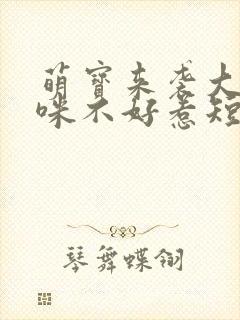 萌宝来袭大
咪不好惹短
琴舞蝶翎